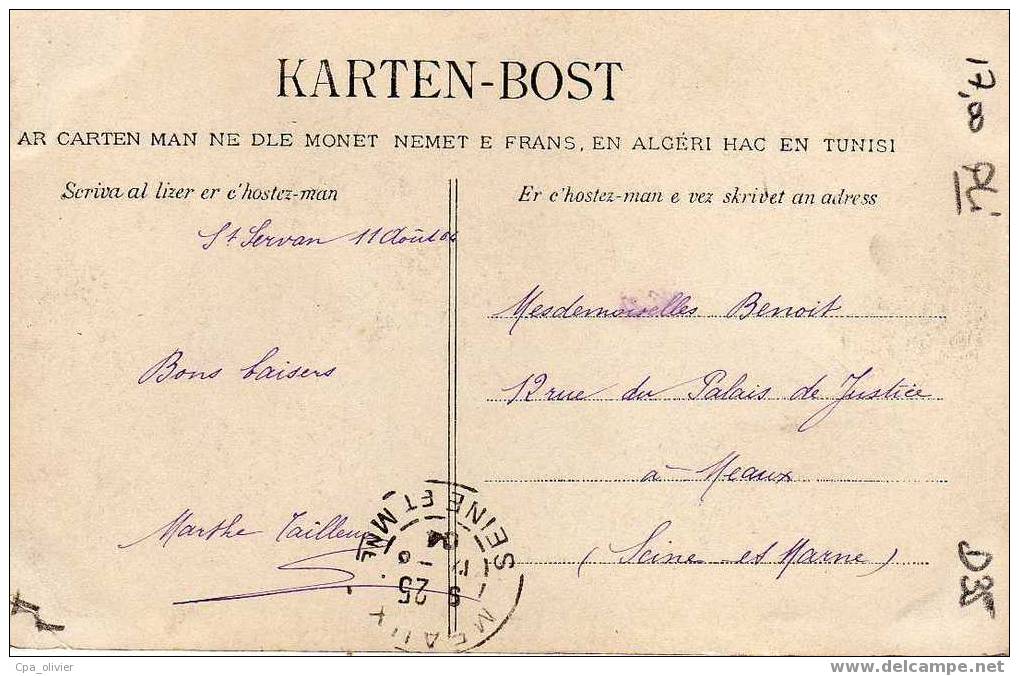 KARTEN-BOST
AR CARTEN MAN NE DLE MONET NEMET E FRANS, EN ALGÉRI HAC EN TUNISI
Scriva al lizer er c'hostez-man
Er c'hostez-man e vez skrivet an adress
St Servan 11 Août 04
Bons baisers
Marthe Tailleur
Mesdemoiselles Benoit
12 rue du Palais de Justice
à Meaux
(Seine et Marne)
MEAUX
SEINE ET MNE
25
04
17,00
D35
Cpa_olivier
www.delcampe.net